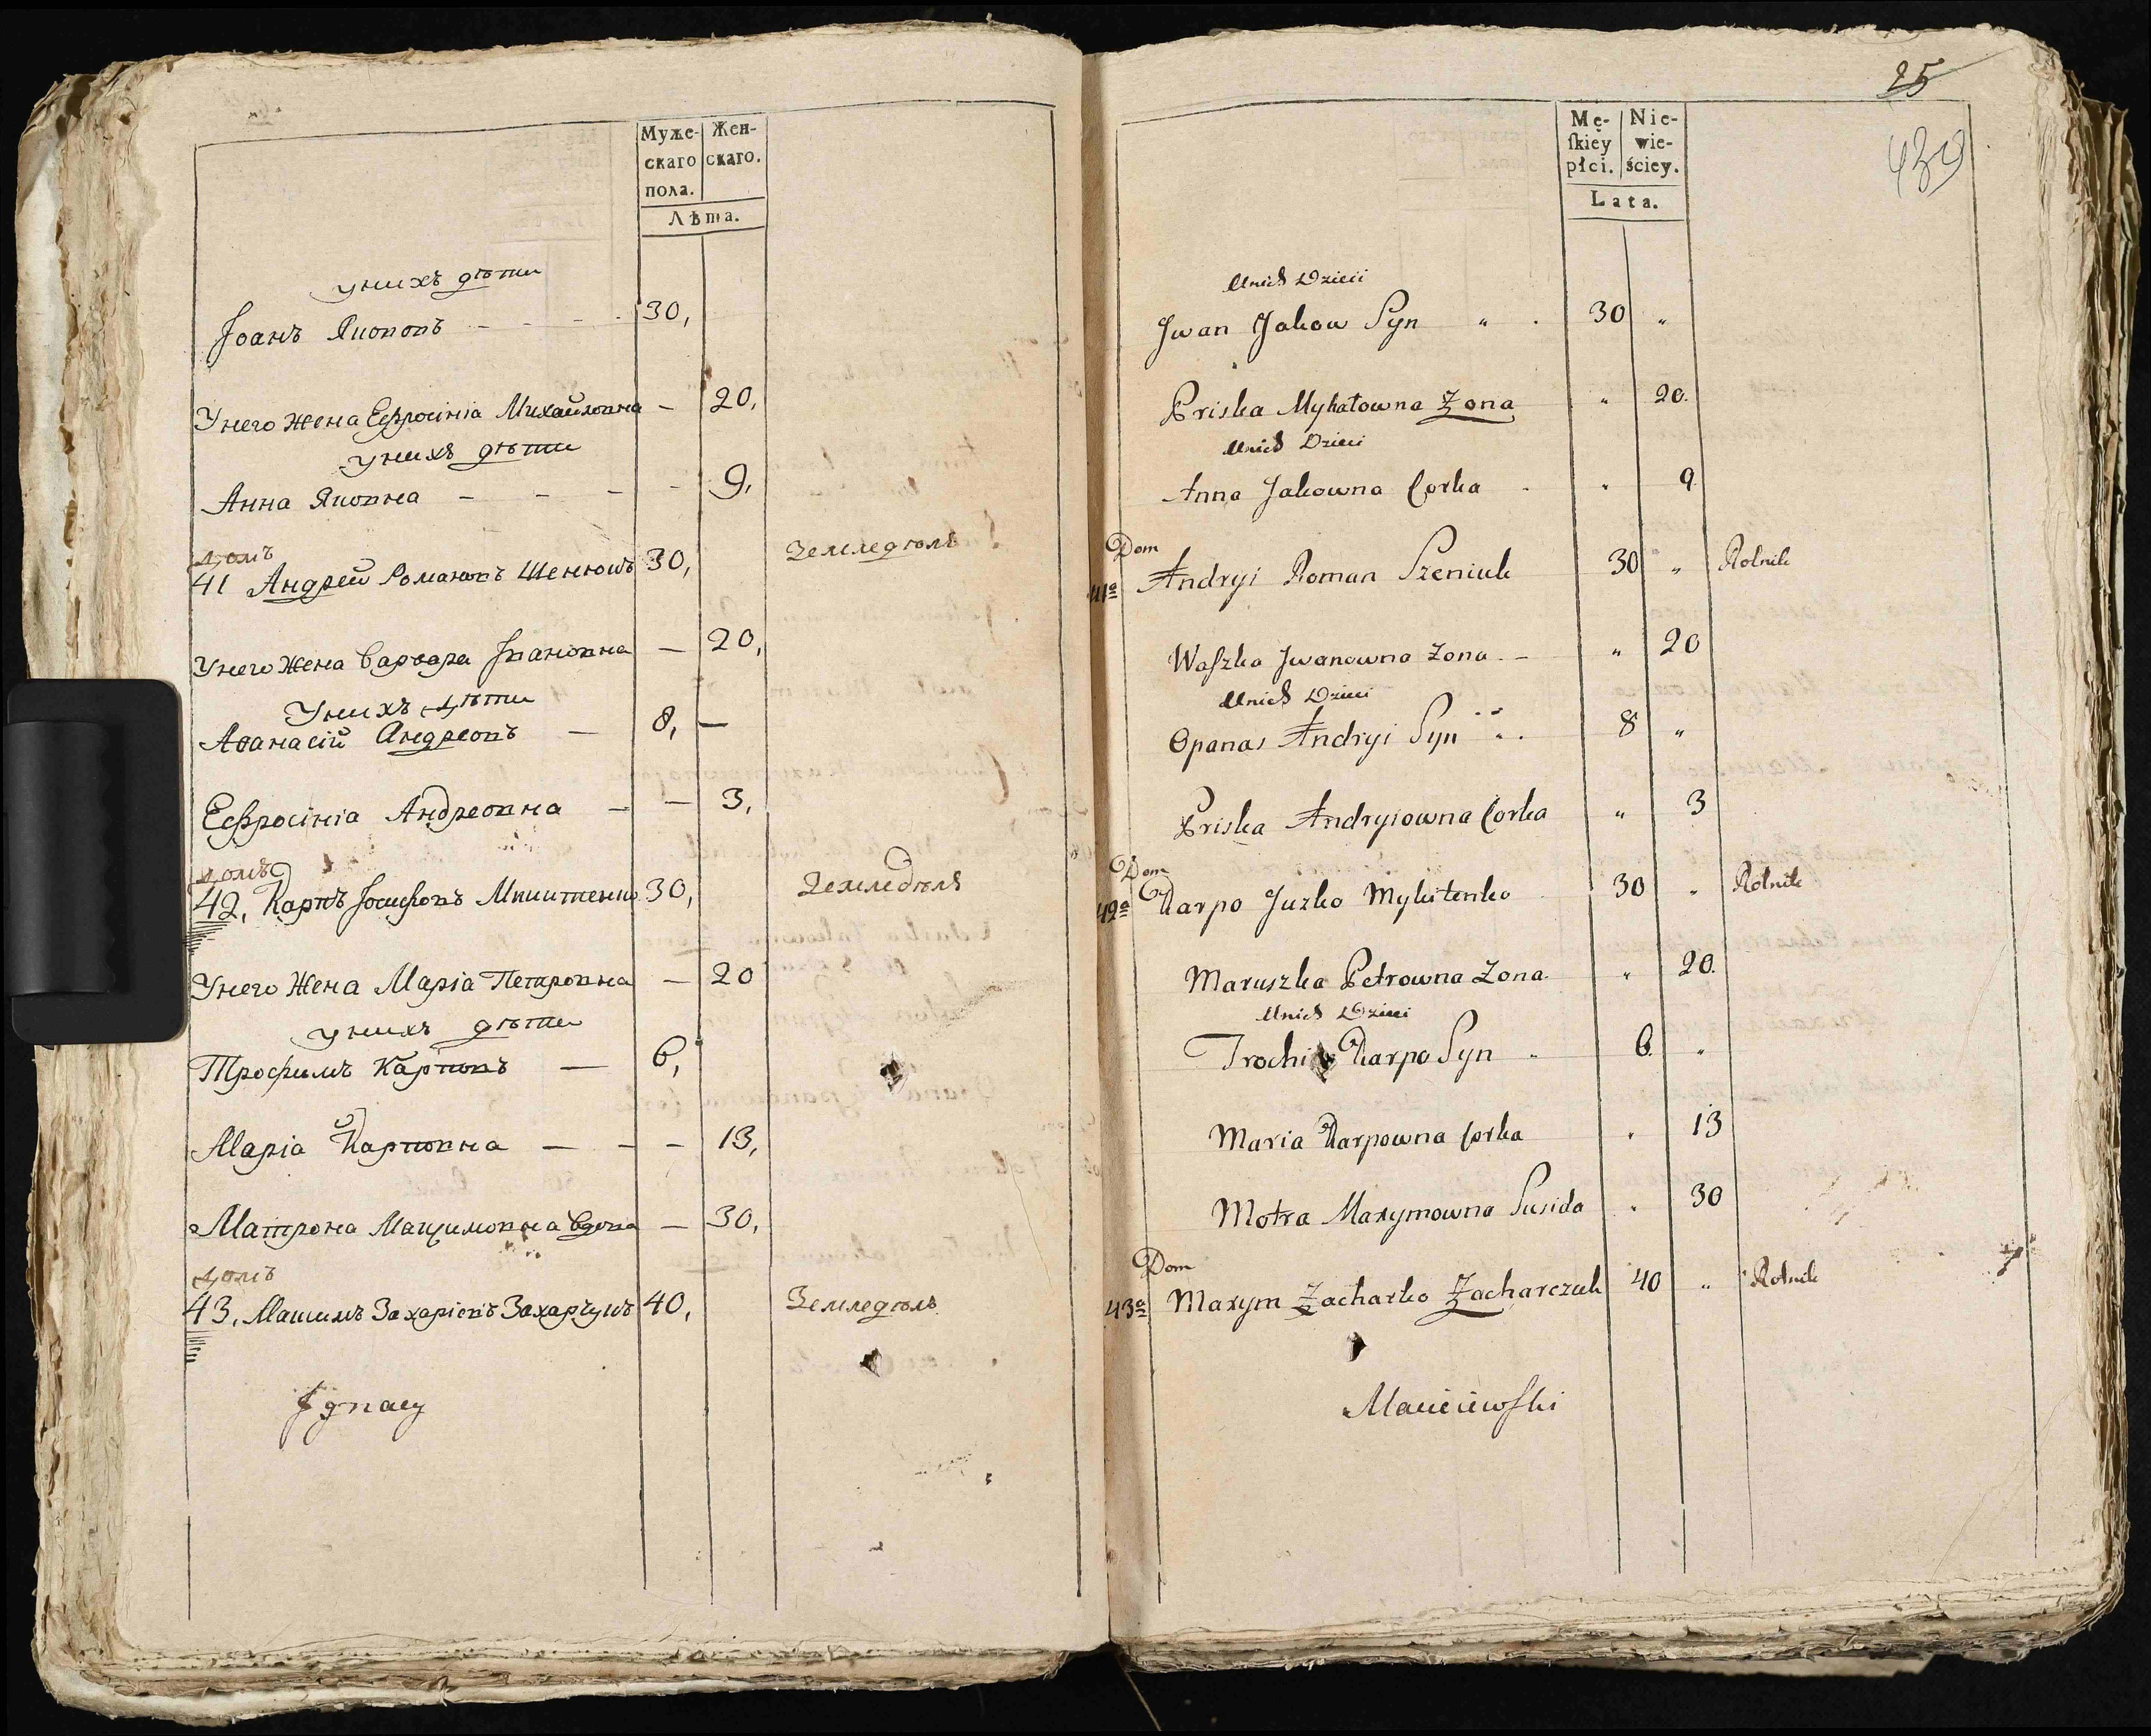 Муже- Жен-
скаго скаго.
пола.
Лѣта.
у нихъ дѣти
Іоанъ Якововъ - - - - 30,
У него жена Ефросинія Михайловна — 20,
у нихъ дѣти
Анна Яковна - - - - 9,
домъ
41 Андрей Романовъ Шенюкъ 30, Земледѣлъ
У него жена Варвара Івановна — 20,
У нихъ дѣти
Аѳанасій Андреовъ — 8, —
Ефросінія Андреовна — — 3,
домъ
42, Карпъ Іосифовъ Микитенко 30, Земледѣлъ
У него жена Марія Петровна — 20
у нихъ дѣти
Трофимъ Карповъ — 6,
Марія Карповна — — — 13,
Матрона Макцимовна вдова — 30,
домъ
43, Макшимъ Захаріевъ Захарчукъ 40, Земледѣлъ
Ignacy
25
430
Mę- Nie-
ſkiey wie-
płci. ściey.
Lata.
Unich Dzieci
Jwan Jakow Syn " . 30 "
Priska Mykałowna Żona " 20.
Unich Dzieci
Anna Jakowna Corka . " 9
Dom
41a Andryi Roman Szeniuk 30 " Rolnik
Waſzka Jwanowna Zona . - " 20
Unich Dzieci
Opanas Andryi Syn " . 8 "
Priska Andryiowna Corka " 3
Dom
42a Karpo Juzko Mykitenko 30 " Rolnik
Maruszka Petrowna Zona " 20.
Unich Dzieci
Trochim Karpo Syn . 6 "
Maria Karpowna Corka " 13
Motra Maxymowna Susida " 30
Dom
43a Maxym Zacharko Zacharczuk 40 " Rolnik
Macieiewſki